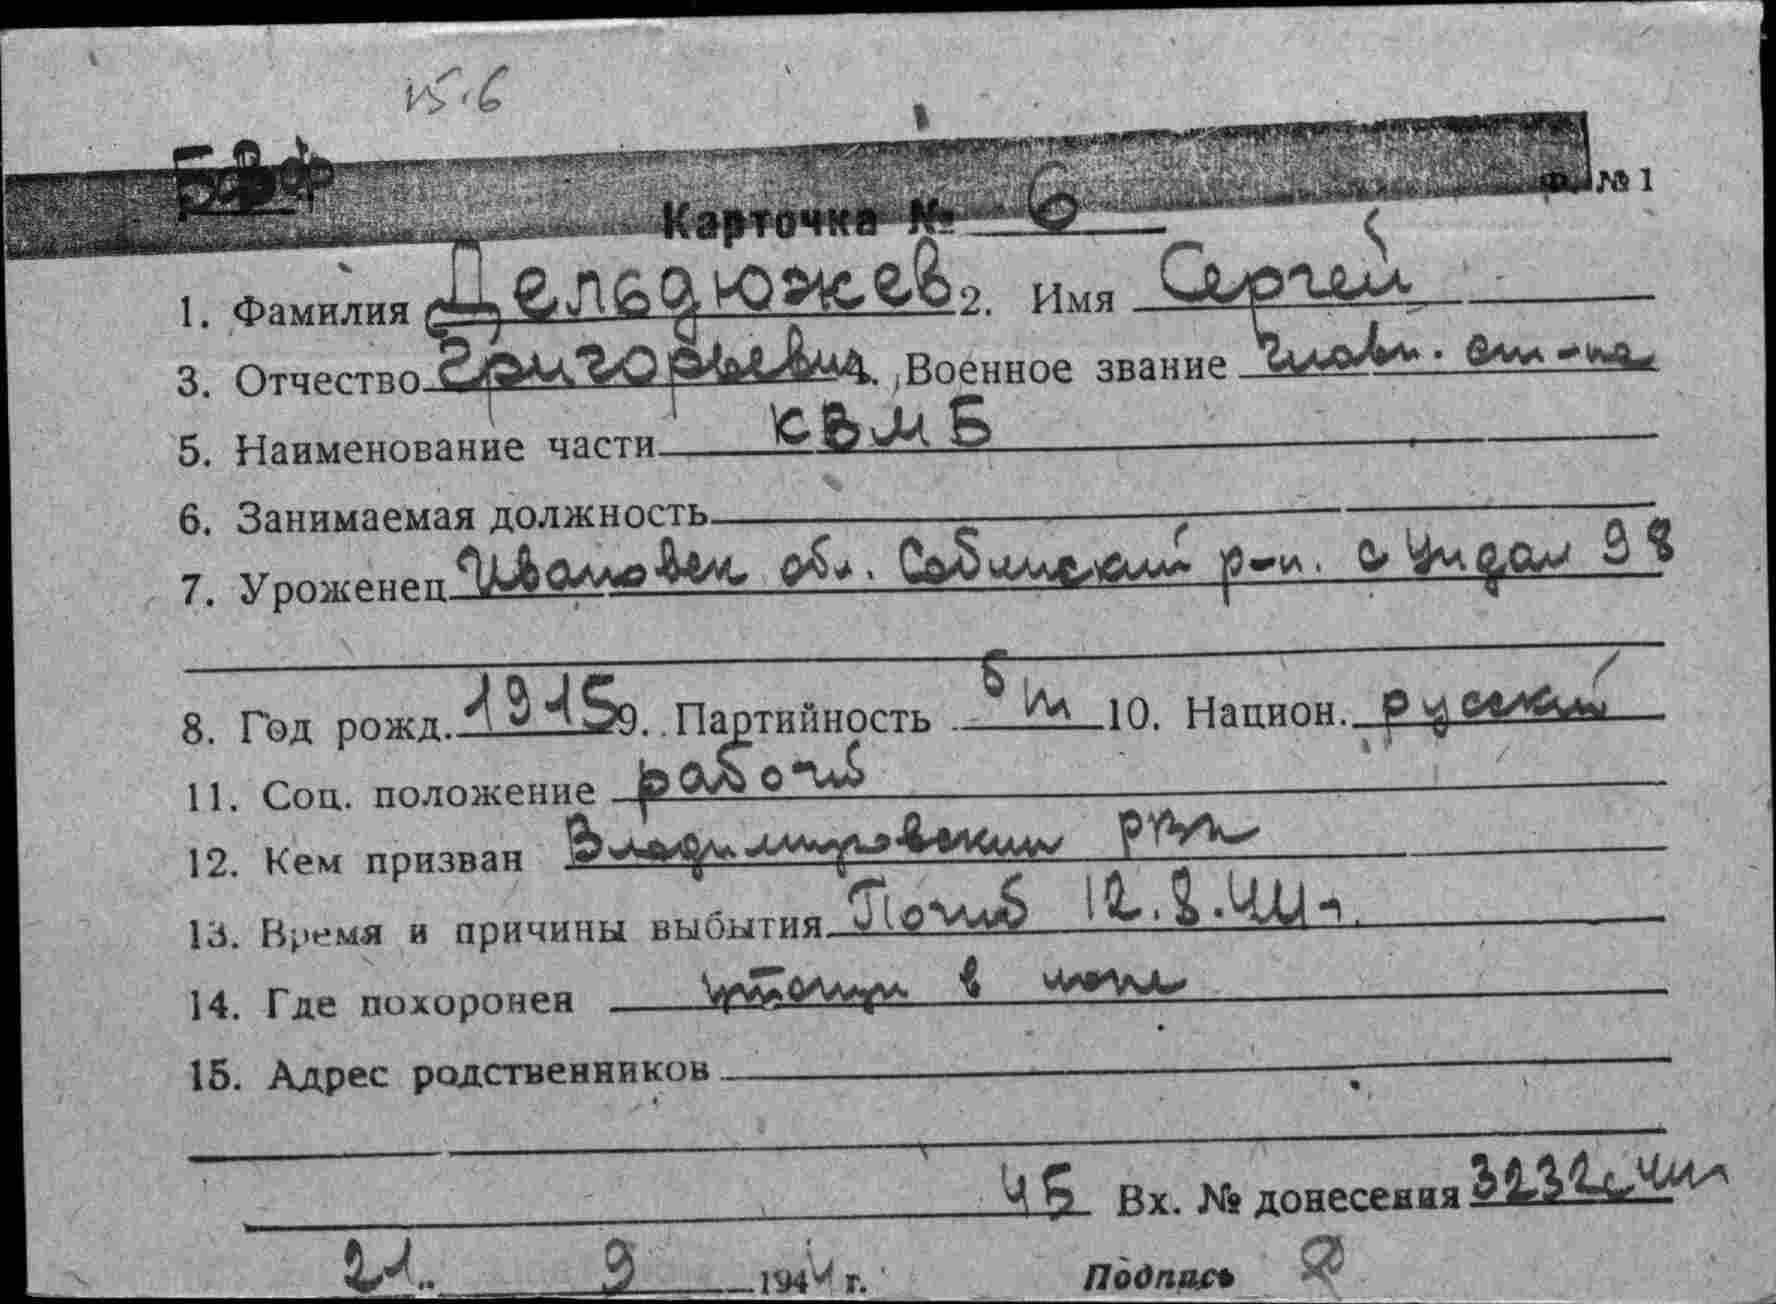 15.6
БВФ
Ф. № 1
Карточка № 6
1. Фамилия Дельдюжев 2. Имя Сергей
3. Отчество Григорьевич 4. Военное звание Главн. ст-на
5. Наименование части КВМБ
6. Занимаемая должность
7. Уроженец Ивановск обл. Собинский р-н. с Ундол 98
8. Год рожд. 1915 9. Партийность б/п 10. Национ. русский
11. Соц. положение рабочий
12. Кем призван Владимировский РВК
13. Время и причины выбытия Погиб 12.8.44 г.
14. Где похоронен в море
15. Адрес родственников
Вх. № донесения 3232с
21. 9 1944 г. Подпись